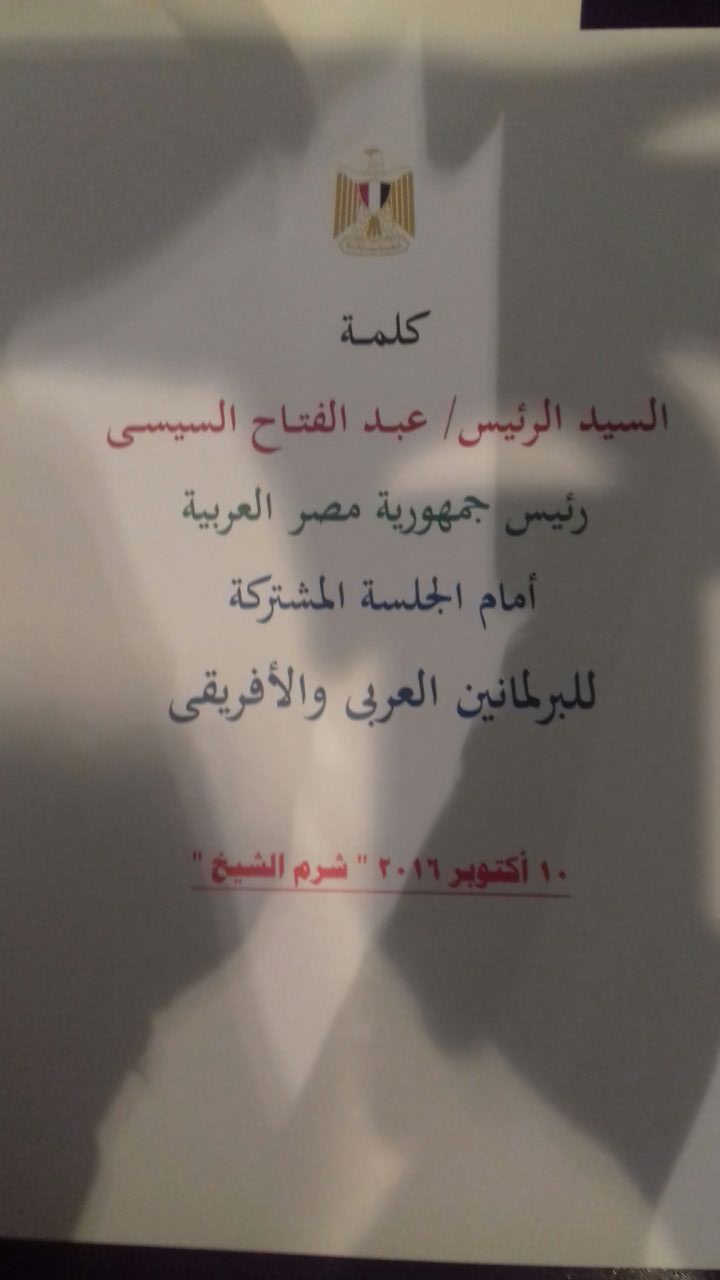 كلمـة
السيد الرئيس/ عبـد الفتـاح السيسـى
رئيس جمهورية مصر العربية
أمام الجلسة المشتركة
للبرلمانين العربى والأفريقى
١٠ أكتوبر ٢٠١٦ " شرم الشيخ "